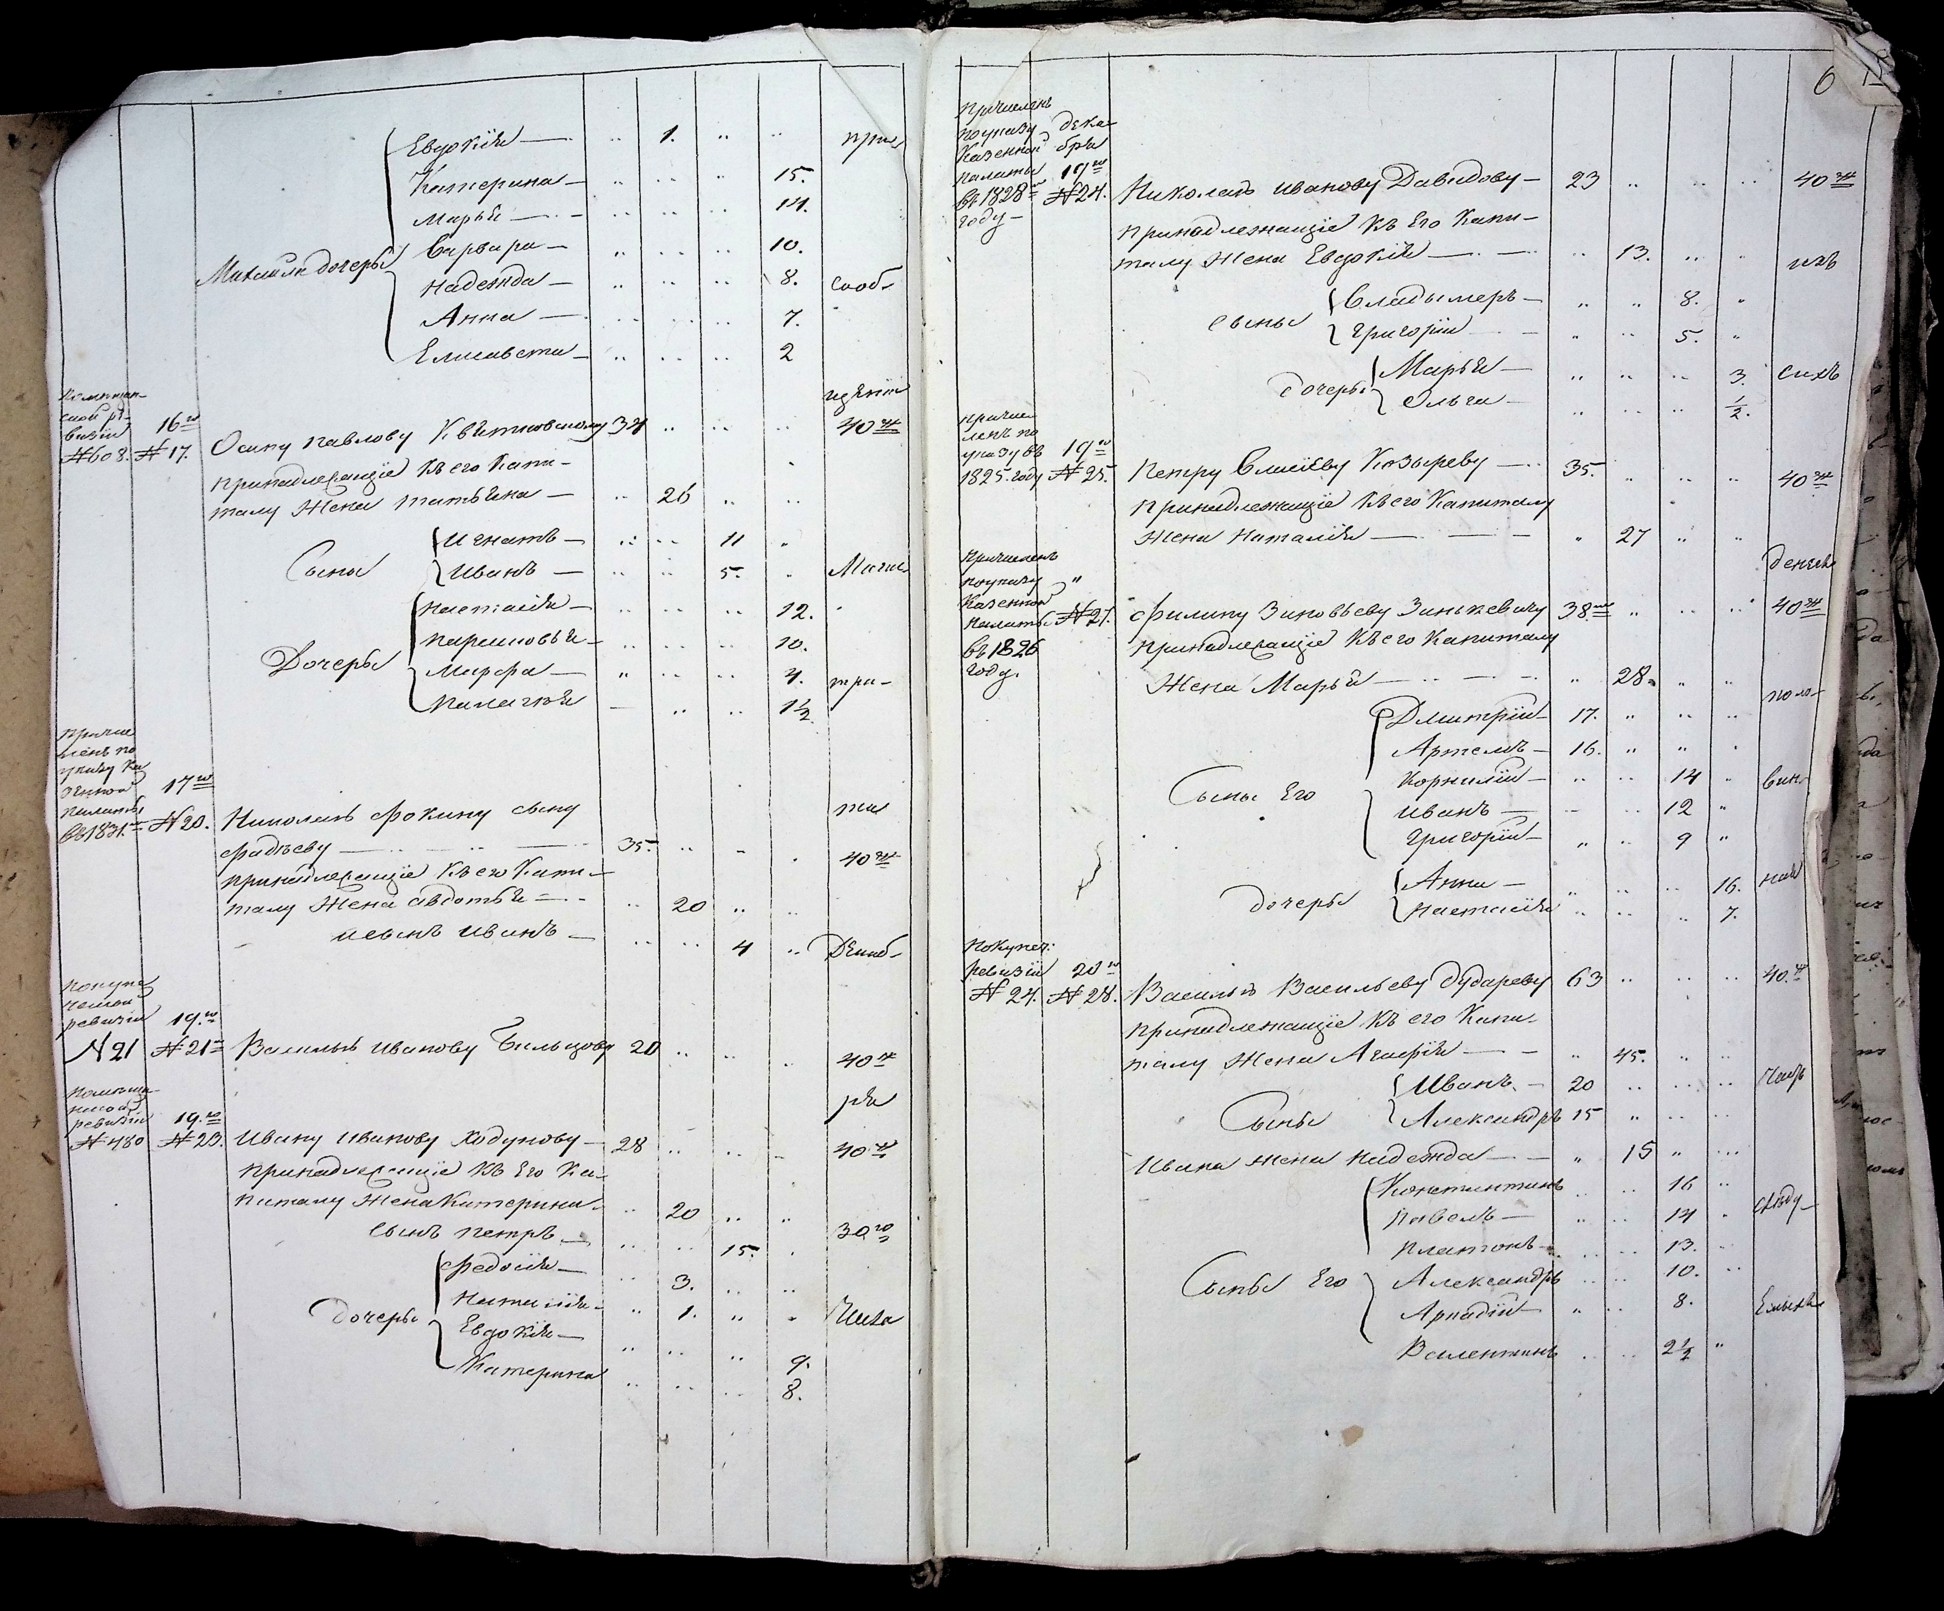 Евдокія — .. 1. .. .. при
Катерина — .. .. .. 15.
Марья — .. .. .. 14.
Михайла дочеры Варвара — .. .. .. 10.
Надежда — .. .. .. 8. сооб-
Анна — .. .. .. 7.
Елисавета — .. .. .. 2
визіи 16го
№608. №17. Осипу Павлову Квятковскому 34 .. .. .. 40ж
принадлежащіе къ его Капи-
талу Жена Татьяна — .. 26 .. ..
Сыны Игнатъ — .. .. 11 ..
Иванъ — .. .. 5. ..
Дочеры Настасія — .. .. .. 12.
Парасковья — .. .. .. 10.
Марфа — .. .. .. 4. тра-
Палагѣя — .. .. 1½
Причис
ленъ по
указу Ка
зенной 17го
Палаты
въ 1831. №20. Николаю Фокину сыну
Фадѣеву — 35. .. .. .. 40ж
принадлежащіе къ его Капи-
талу Жена Авдотья — .. 20 .. ..
и сынъ Иванъ — .. .. 4 .. Декаб-
ревизіи 19го
№21 №21 Василью Иванову Бильцову 20 .. .. .. 40ж
ря
ревизіи 19го
№480 №23. Ивану Иванову Ходунову — 28 .. .. .. 40ж
принадлежащіе къ Его Ка-
питалу Жена Катерина — .. 20 .. ..
сынъ Петръ — .. .. 15. .. 30го
Дочеры Федосія — .. 3. .. ..
Наталія — .. 1. .. .. Числа
Евдокія — .. .. .. 9.
Катерина .. .. .. 8.
6
Причисленъ
по указу Дека-
Казенной бря
Палаты 19го
въ 1828м №24. Николаю Иванову Давидову — 23 .. .. .. 40ж
году —
принадлежащіе къ Его Капи-
талу Жена Евдокія — .. 13. .. .. ихъ
Сыны Владымеръ — .. .. 8. ..
Григорій — .. .. 5. ..
дочеры Марья — .. .. .. 3. сихъ
Ольга — .. .. .. ½.
Причис
ленъ по
указу въ 19го
1825. году №25. Петру Елисѣеву Козыреву — 35. .. .. .. 40ж
принадлежащіе къ его Капиталу
Жена Наталія — .. 27 .. ..
Причисленъ
по указу ..
Казенной
Палаты №27. Филипу Зиновьеву Зинькевичу 38 .. .. .. 40ж
въ 1826 принадлежащіе къ его Капиталу
году. Жена Марья — .. 28 .. ..
Дмитрій — 17. .. .. ..
Артемъ — 16. .. .. ..
Сыны Его Корнилій — .. .. 14 ..
Иванъ — .. .. 12 ..
Григорій — .. .. 9 ..
дочеры Анна — .. .. .. 16. ной
Настасія .. .. .. 7.
По купеч:
ревизіи 20го
№24. №28. Василью Васильеву Дудареву 63 .. .. .. 40ж
принадлежащіе къ его Капи-
талу Жена Агафія — .. 45. .. ..
Сыны Иванъ — 20 .. .. ..
Александръ 15 .. .. ..
Ивана жена Надежда — .. 15 .. ..
Константинъ .. .. 16 ..
Павелъ — .. .. 14 .. слѣду-
Платонъ — .. .. 13. ..
Сыны Его Александръ .. .. 10. ..
Аркадій .. .. 8.
Валентинъ .. .. 2½ ..